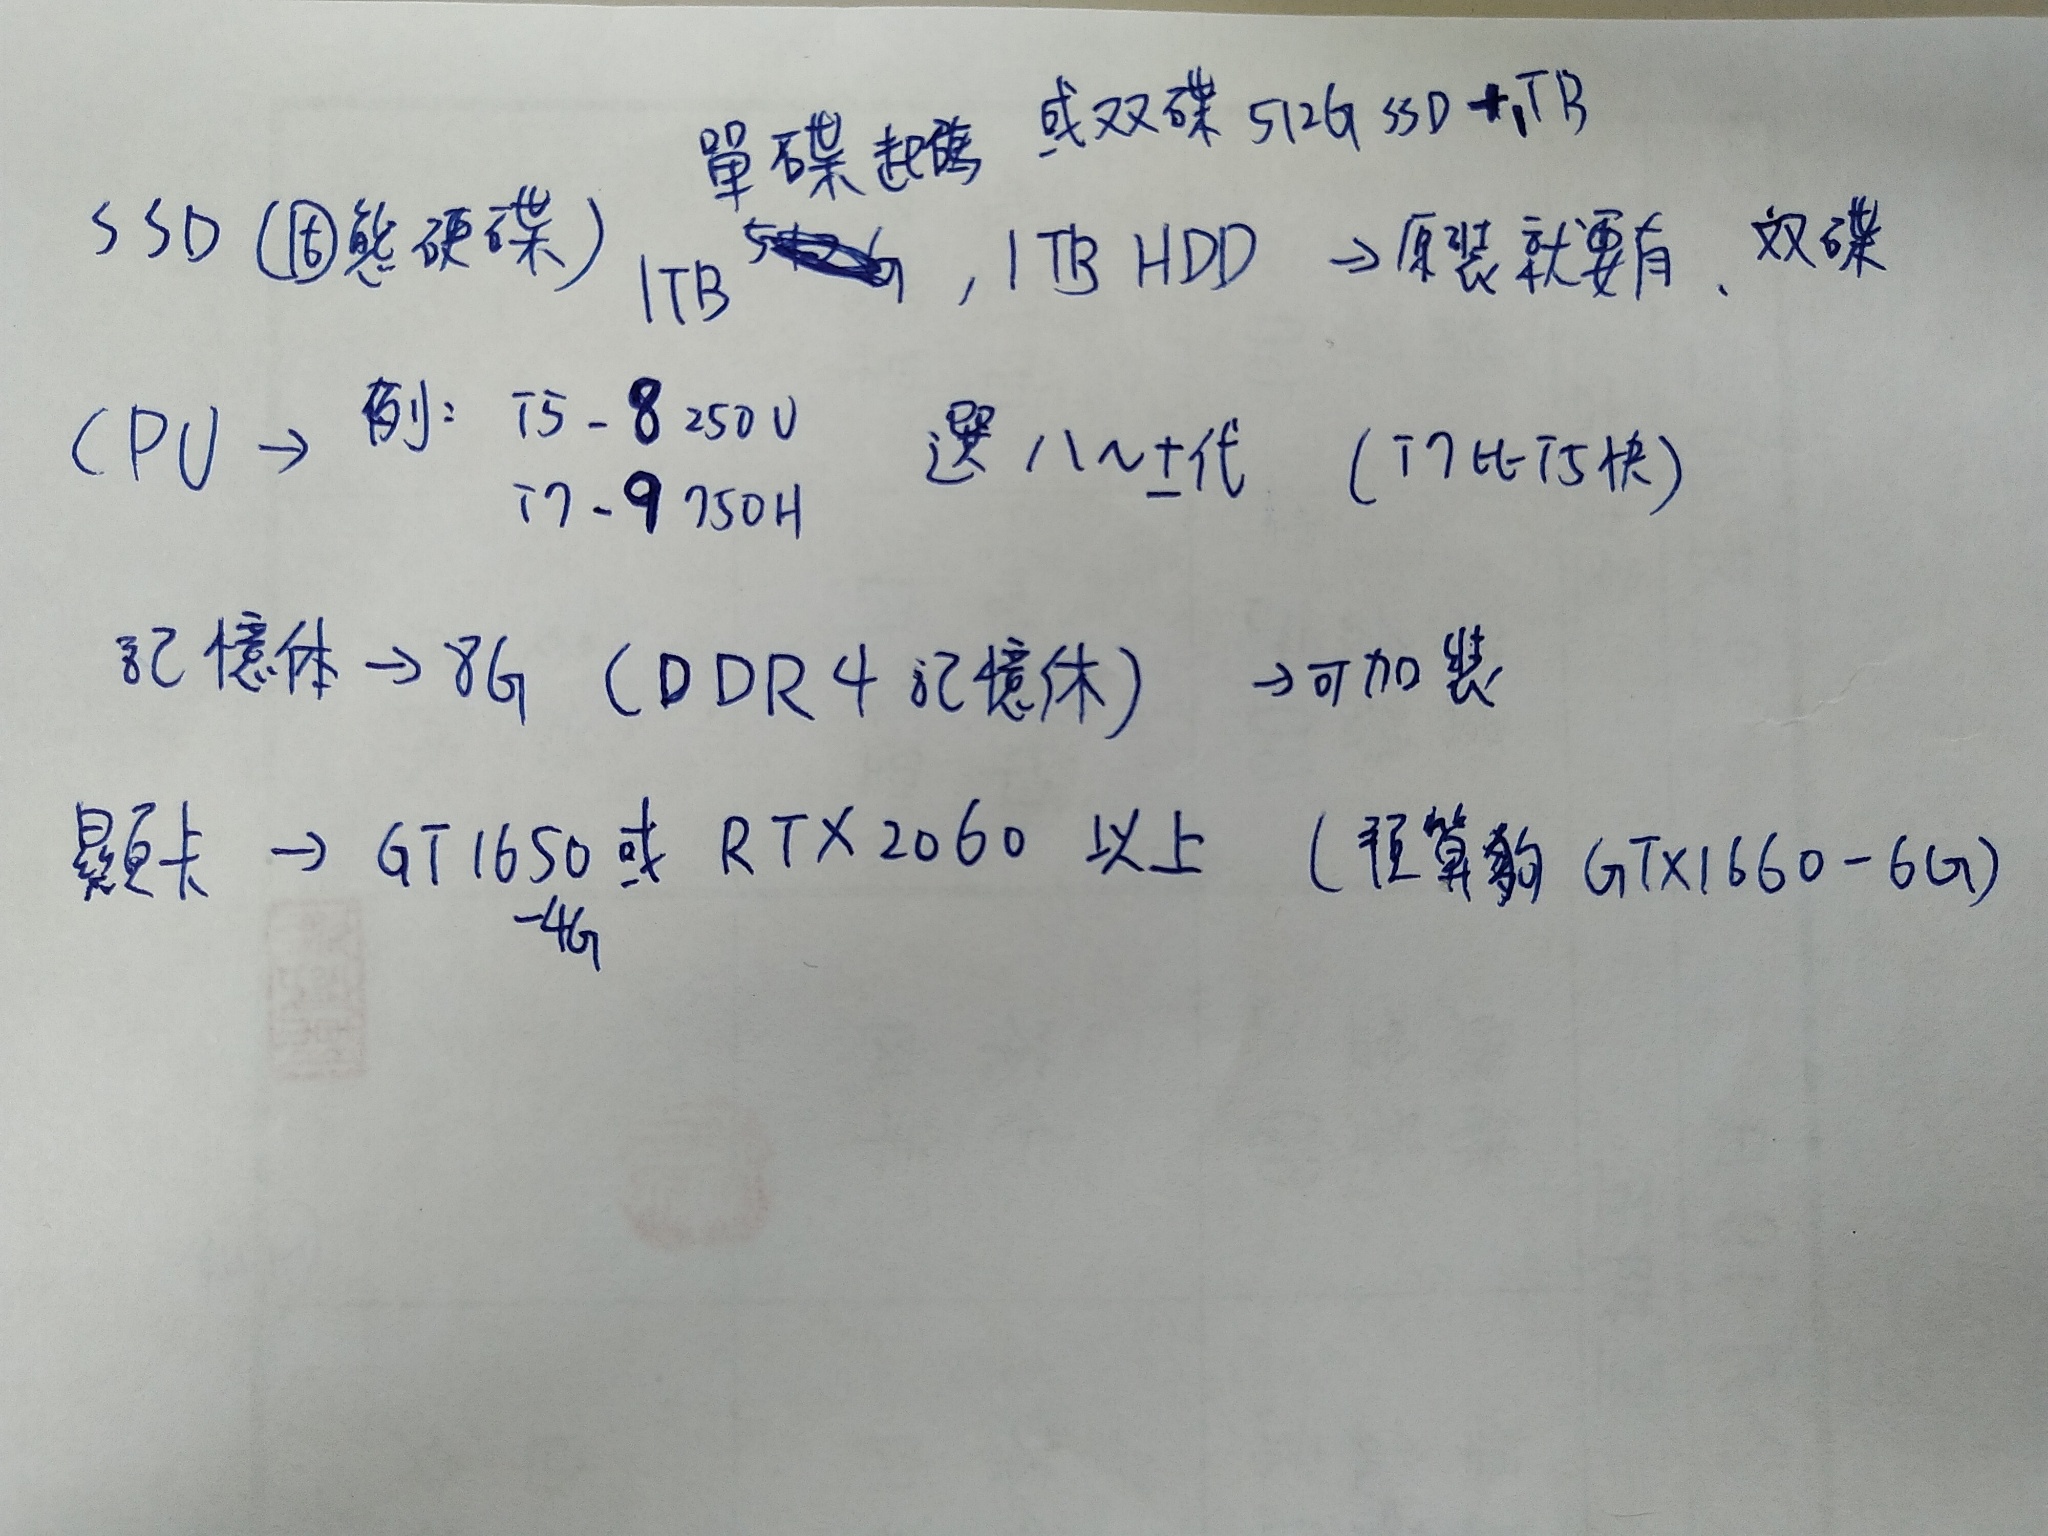 單碟起碼 或双碟 512G SSD + 1TB
SSD (固態硬碟) 1TB, 1TB HDD → 原裝就要有、双碟
CPU → 例: i5-8250U 選八~十代 (i7比i5快)
i7-9750H
記憶体 → 8G (DDR4 記憶体) → 可加裝
顯卡 → GT1650 或 RTX2060 以上 (預算夠 GTX1660-6G)
-4G